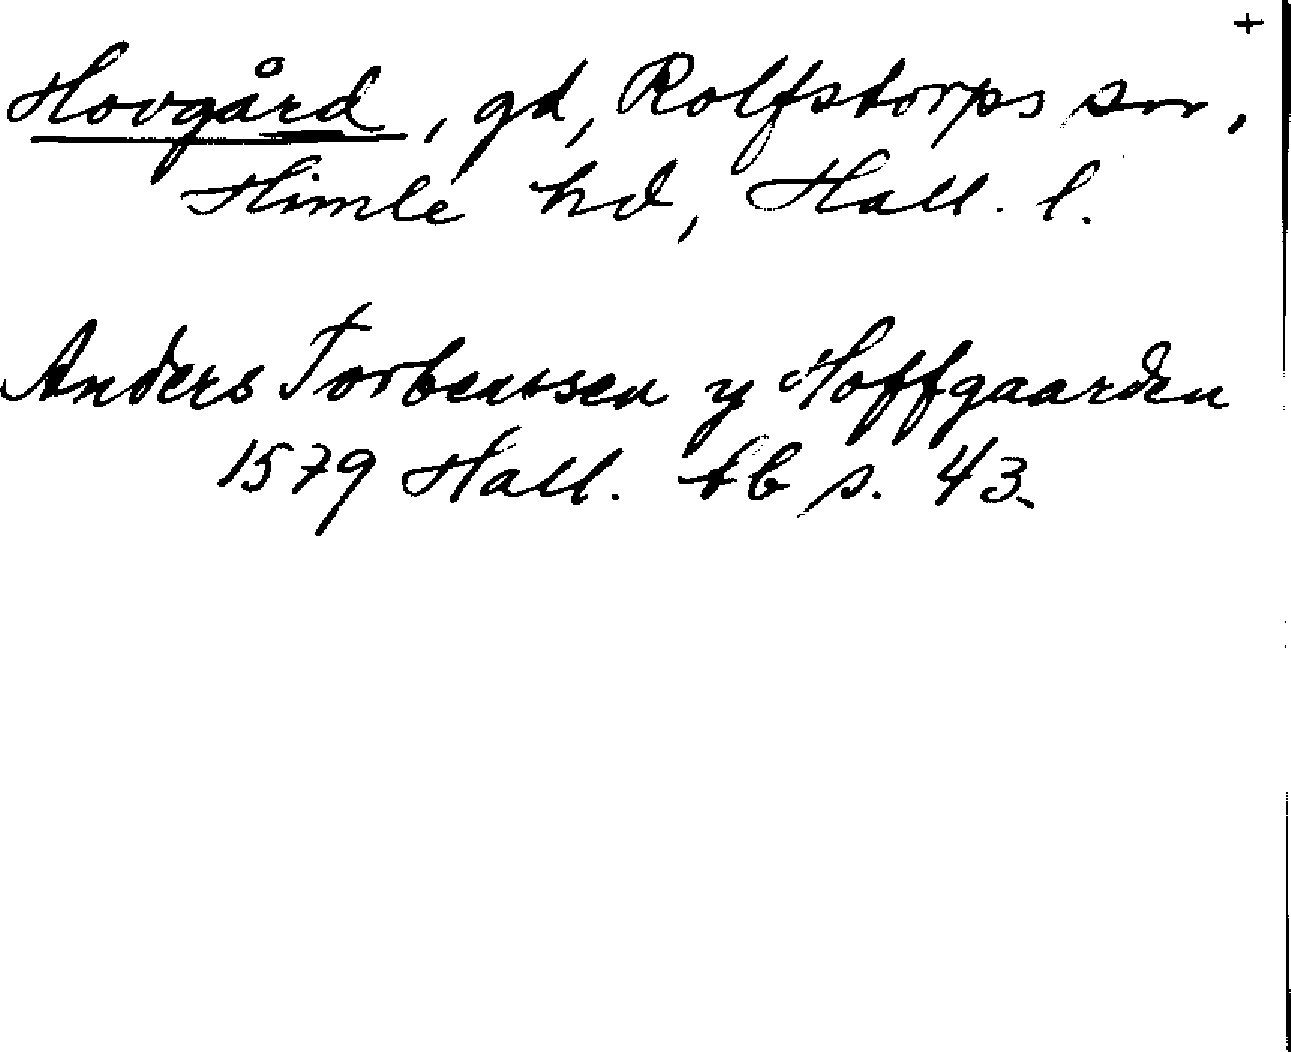 +
Hovgård, gd, Rolfstorps sn,
Himle hd, Hall. l.
Anders Torbenssen y Hoffgaarden
1579 Hall. tb s. 43